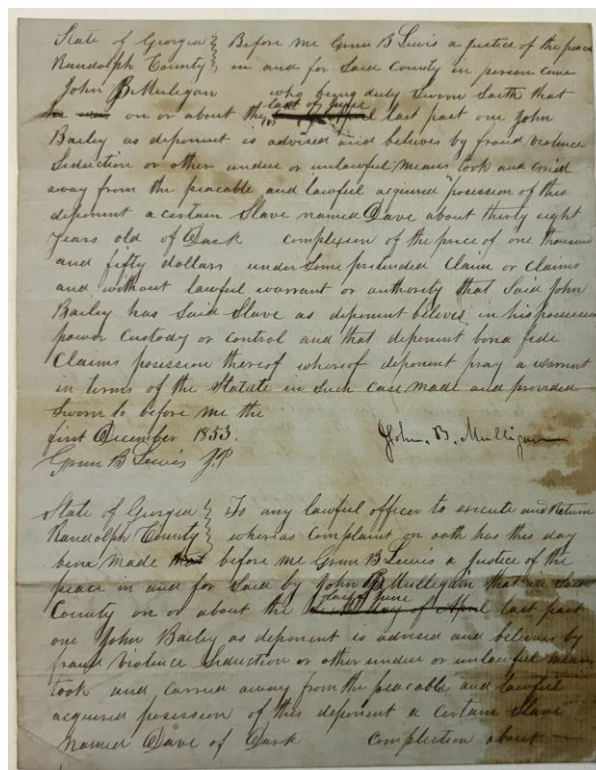 State of Georgia } Before me Green B Lewis a Justice of the peace
Randolph County } in and for Said County in person come
John B Mulegan who being duly Sworn Saith that
on or about the last of June last past one John
Bailey as deponent is advised and believes by fraud violence
Seduction or other undue or unlawful means took and caried
away from the peacable and lawful acquired posession of this
deponent a certain Slave named Dave about thirty eight
years old of Dark complexion of the price of one thousand
and fifty dollars under Some pretended Claim or Claims
and without lawful warrant or authority that Said John
Bailey has Said Slave as deponent belives in his possession
power Custody or control and that deponent bona fide
Claims posession thereof whereof deponent pray a warrant
in terms of the Statute in Such case made and provided
Sworn to before me the
first December 1853. John. B. Mulligan
Green B Lewis J.P
State of Georgia } To any lawful officer to execute and Return
Randolph County } whereas Complaint on oath has this day
bene made before me Green B Lewis a Justice of the
peace in and for Said by John B Mullegan that in Said
County on or about the last of June last past
one John Bailey as deponent is advised and believes by
fraud violence Seduction or other undue or unlawful means
took and carried away from the peacable and lawful
acquired posession of this deponent a certain Slave
named Dave of Dark complection about